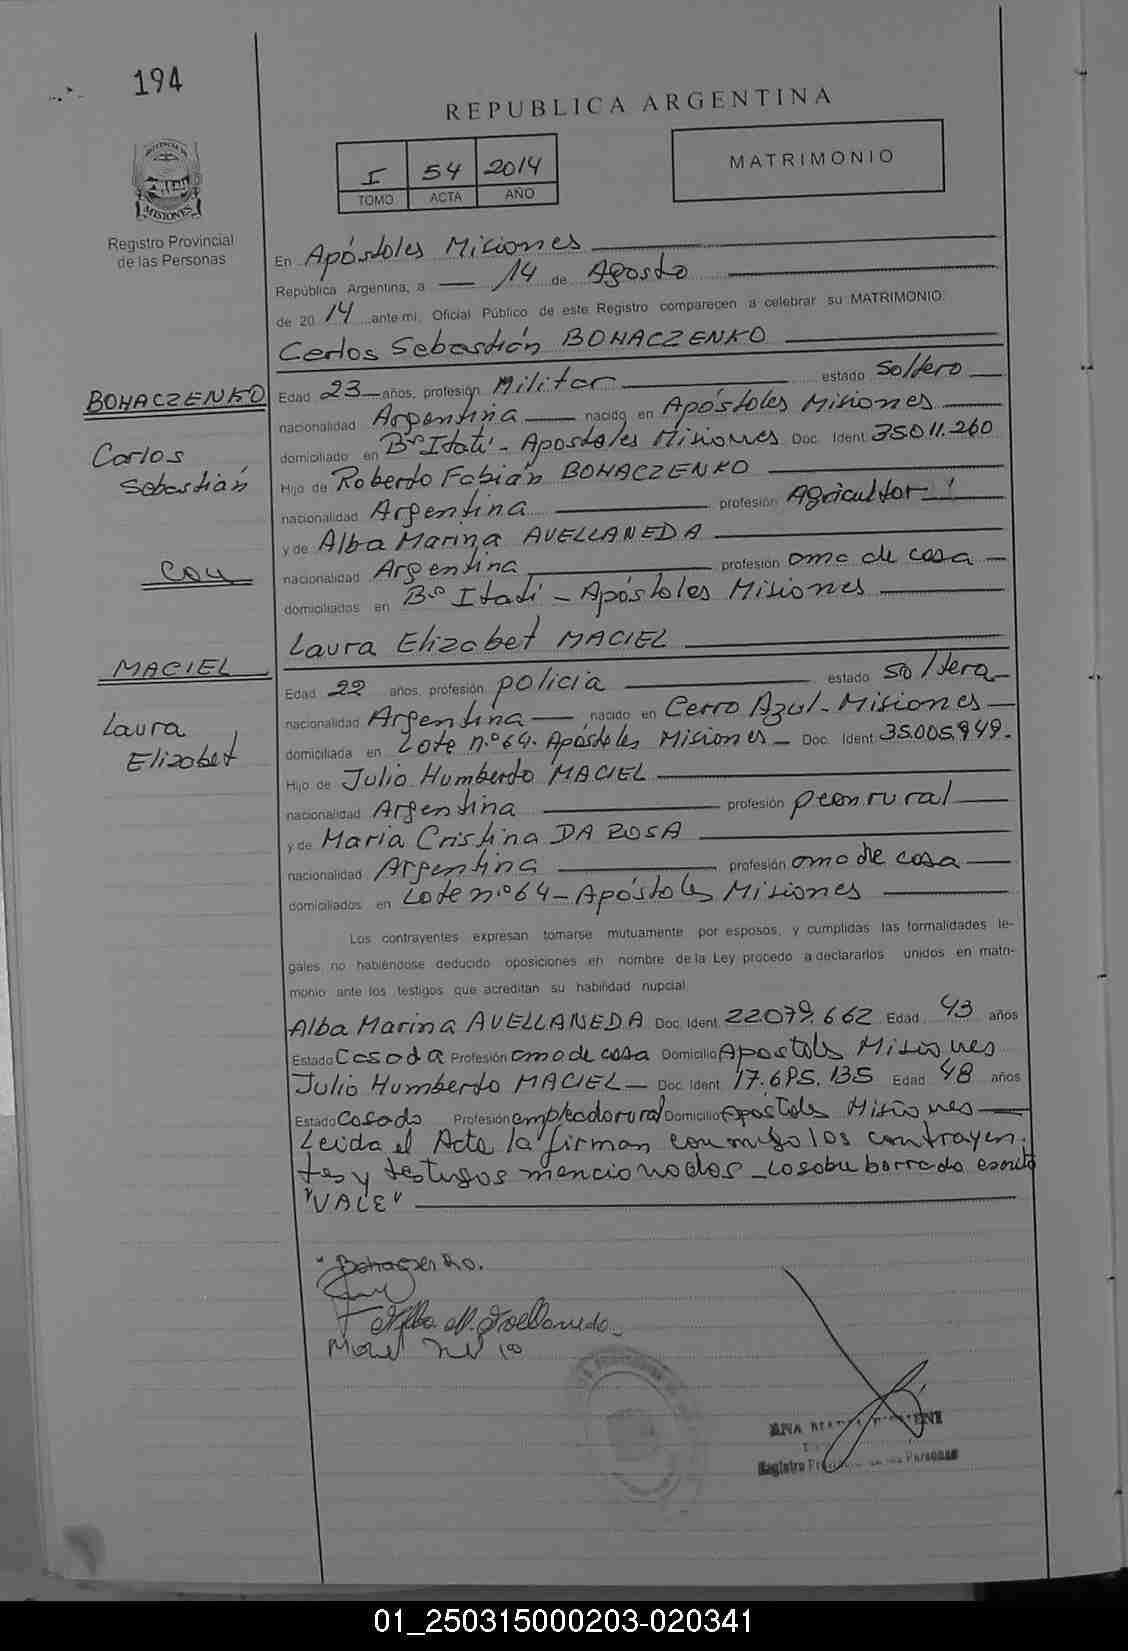 194
REPUBLICA ARGENTINA
I 54 2014
TOMO ACTA AÑO
MATRIMONIO
PROVINCIA DE
MISIONES
Registro Provincial
de las Personas
En Apóstoles Misiones
República Argentina, a 14 de Agosto
de 2014 ante mi, Oficial Público de este Registro comparecen a celebrar su MATRIMONIO:
Carlos Sebastián BOHACZENKO
BOHACZENKO
Carlos
Sebastián
con
MACIEL
Laura
Elizabet
Edad 23 años, profesión Militar estado Soltero
nacionalidad Argentina nacido en Apóstoles Misiones
domiciliado en Bº Itatí - Apostoles Misiones Doc. Ident. 35011.260
Hijo de Roberto Fabián BOHACZENKO
nacionalidad Argentina profesión Agricultor
y de Alba Marina AVELLANEDA
nacionalidad Argentina profesión ama de casa
domiciliados en Bº Itatí - Apóstoles Misiones
Laura Elizabet MACIEL
Edad 22 años, profesión policía estado soltera
nacionalidad Argentina nacido en Cerro Azul - Misiones
domiciliada en Lote n.º 64. Apóstoles Misiones Doc. Ident. 35.005.949.
Hijo de Julio Humberto MACIEL
nacionalidad Argentina profesión peon rural
y de Maria Cristina DA ROSA
nacionalidad Argentina profesión ama de casa
domiciliados en Lote n.º 64 - Apóstoles Misiones
Los contrayentes expresan tomarse mutuamente por esposos, y cumplidas las formalidades le-
gales, no habiéndose deducido oposiciones en nombre de la Ley procedo a declararlos unidos en matri-
monio ante los testigos que acreditan su habilidad nupcial.
Alba Marina AVELLANEDA Doc. Ident. 22.079.662 Edad 43 años
Estado Casada Profesión ama de casa Domicilio Apostoles Misiones
Julio Humberto MACIEL Doc. Ident. 17.695.135 Edad 48 años
Estado Casado Profesión empleado rural Domicilio Apóstoles Misiones
Leida el Acta la firman conmigo los contrayen
tes y testigos mencionados - Lo sobre borrado escrito
"VALE"
Bohaczenko.
Alba M. Avellaneda
ANA
Registro Personas
01_250315000203-020341